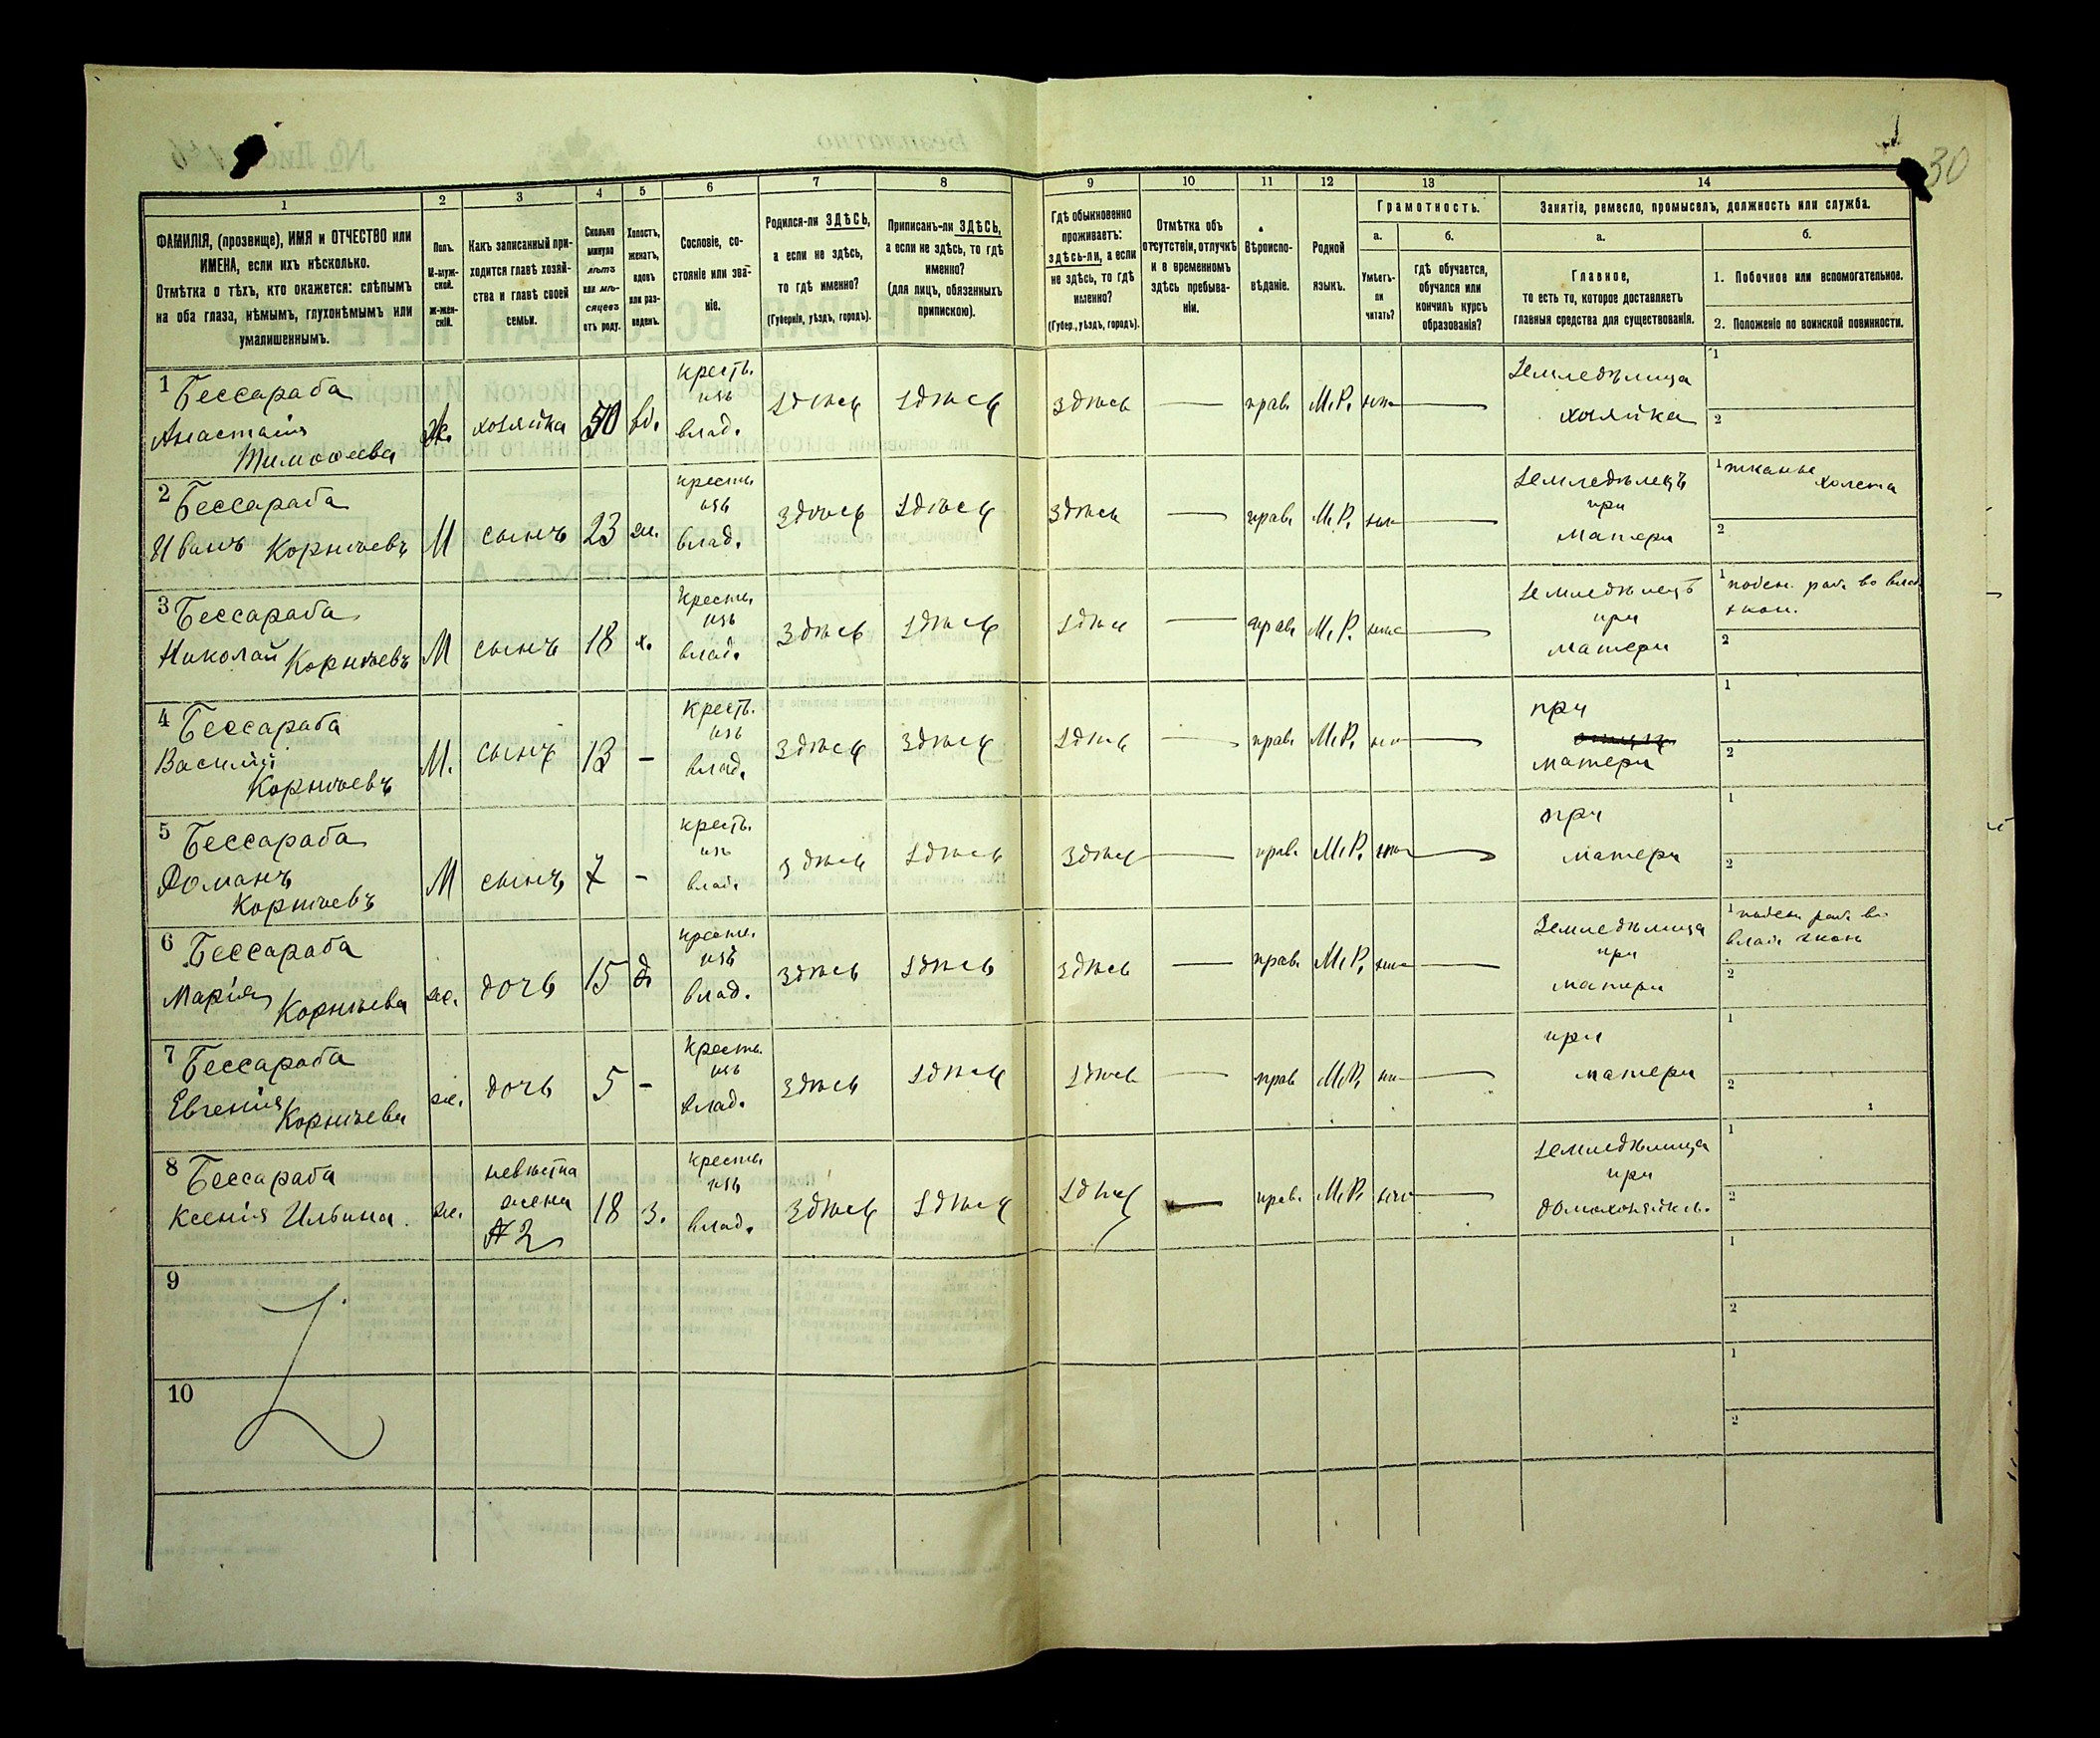 30
1 2 3 4 5 6 7 8 9 10 11 12 13 14
ФАМИЛІЯ, (прозвище), ИМЯ и ОТЧЕСТВО или
ИМЕНА, если ихъ нѣсколько.
Отмѣтка о тѣхъ, кто окажется: слѣпымъ
на оба глаза, нѣмымъ, глухонѣмымъ или
умалишеннымъ.
Полъ.
М-муж-
ской.
Ж-жен-
скій.
Какъ записанный при-
ходится главѣ хозяй-
ства и главѣ своей
семьи.
Сколько
минуло
лѣтъ
или мѣ-
сяцевъ
отъ роду.
Холостъ,
женатъ,
вдовъ
или раз-
веденъ.
Сословіе, со-
стояніе или зва-
ніе.
Родился-ли ЗДѢСЬ,
а если не здѣсь,
то гдѣ именно?
(Губернія, уѣздъ, городъ).
Приписанъ-ли ЗДѢСЬ,
а если не здѣсь, то гдѣ
именно?
(для лицъ, обязанныхъ
припискою).
Гдѣ обыкновенно
проживаетъ:
здѣсь-ли, а если
не здѣсь, то гдѣ
именно?
(Губер., уѣздъ, городъ).
Отмѣтка объ
отсутствіи, отлучкѣ
и о временномъ
здѣсь пребыва-
ніи.
Вѣроиспо-
вѣданіе.
Родной
языкъ.
Грамотность.
а.
Умѣетъ-
ли
читать?
б.
гдѣ обучается,
обучался или
кончилъ курсъ
образованія?
Занятіе, ремесло, промыселъ, должность или служба.
а.
Главное,
то есть то, которое доставляетъ
главныя средства для существованія.
б.
1. Побочное или вспомогательное.
2. Положеніе по воинской повинности.
1 Бессараба
Анастасія
Тимоѳеева
Ж. хозяйка 50 вд.
кресть.
изъ
влад.
здѣсь здѣсь здѣсь — прав. М.Р. —
Земледѣлица
хозяйка
1
2
2 Бессараба
Иванъ Корнѣевъ
М сынъ 23 ж.
кресть.
изъ
влад.
здѣсь здѣсь здѣсь — прав. М.Р. —
Земледѣлецъ
при
матери
1 тканье
холста
2
3 Бессараба
Николай Корнѣевъ
М сынъ 18 х.
кресть.
изъ
влад.
здѣсь здѣсь здѣсь — прав. М.Р. —
Земледѣлецъ
при
матери
1 поден. раб. во влад.
экон.
2
4 Бессараба
Василій
Корнѣевъ
М. сынъ 13 –
кресть.
изъ
влад.
здѣсь здѣсь здѣсь — прав. М.Р. —
при
матери
1
2
5 Бессараба
Романъ
Корнѣевъ
М сынъ 7 –
кресть.
изъ
влад.
здѣсь здѣсь здѣсь — прав. М.Р. —
при
матери
1
2
6 Бессараба
Марія Корнѣева
ж. дочь 15 д.
кресть.
изъ
влад.
здѣсь здѣсь здѣсь — прав. М.Р. —
Земледѣлица
при
матери
1 поден. раб. во
влад. экон.
2
7 Бессараба
Евгенія Корнѣева
ж. дочь 5 –
кресть.
изъ
влад.
здѣсь здѣсь здѣсь — прав М.Р. —
при
матери
1
2
8 Бессараба
Ксенія Ильина.
ж.
невѣстка
жена
№2
18 з.
кресть.
изъ
влад.
здѣсь здѣсь здѣсь — прав. М.Р. —
земледѣлица
при
домохозяйкѣ.
1
2
9
1
2
10
1
2